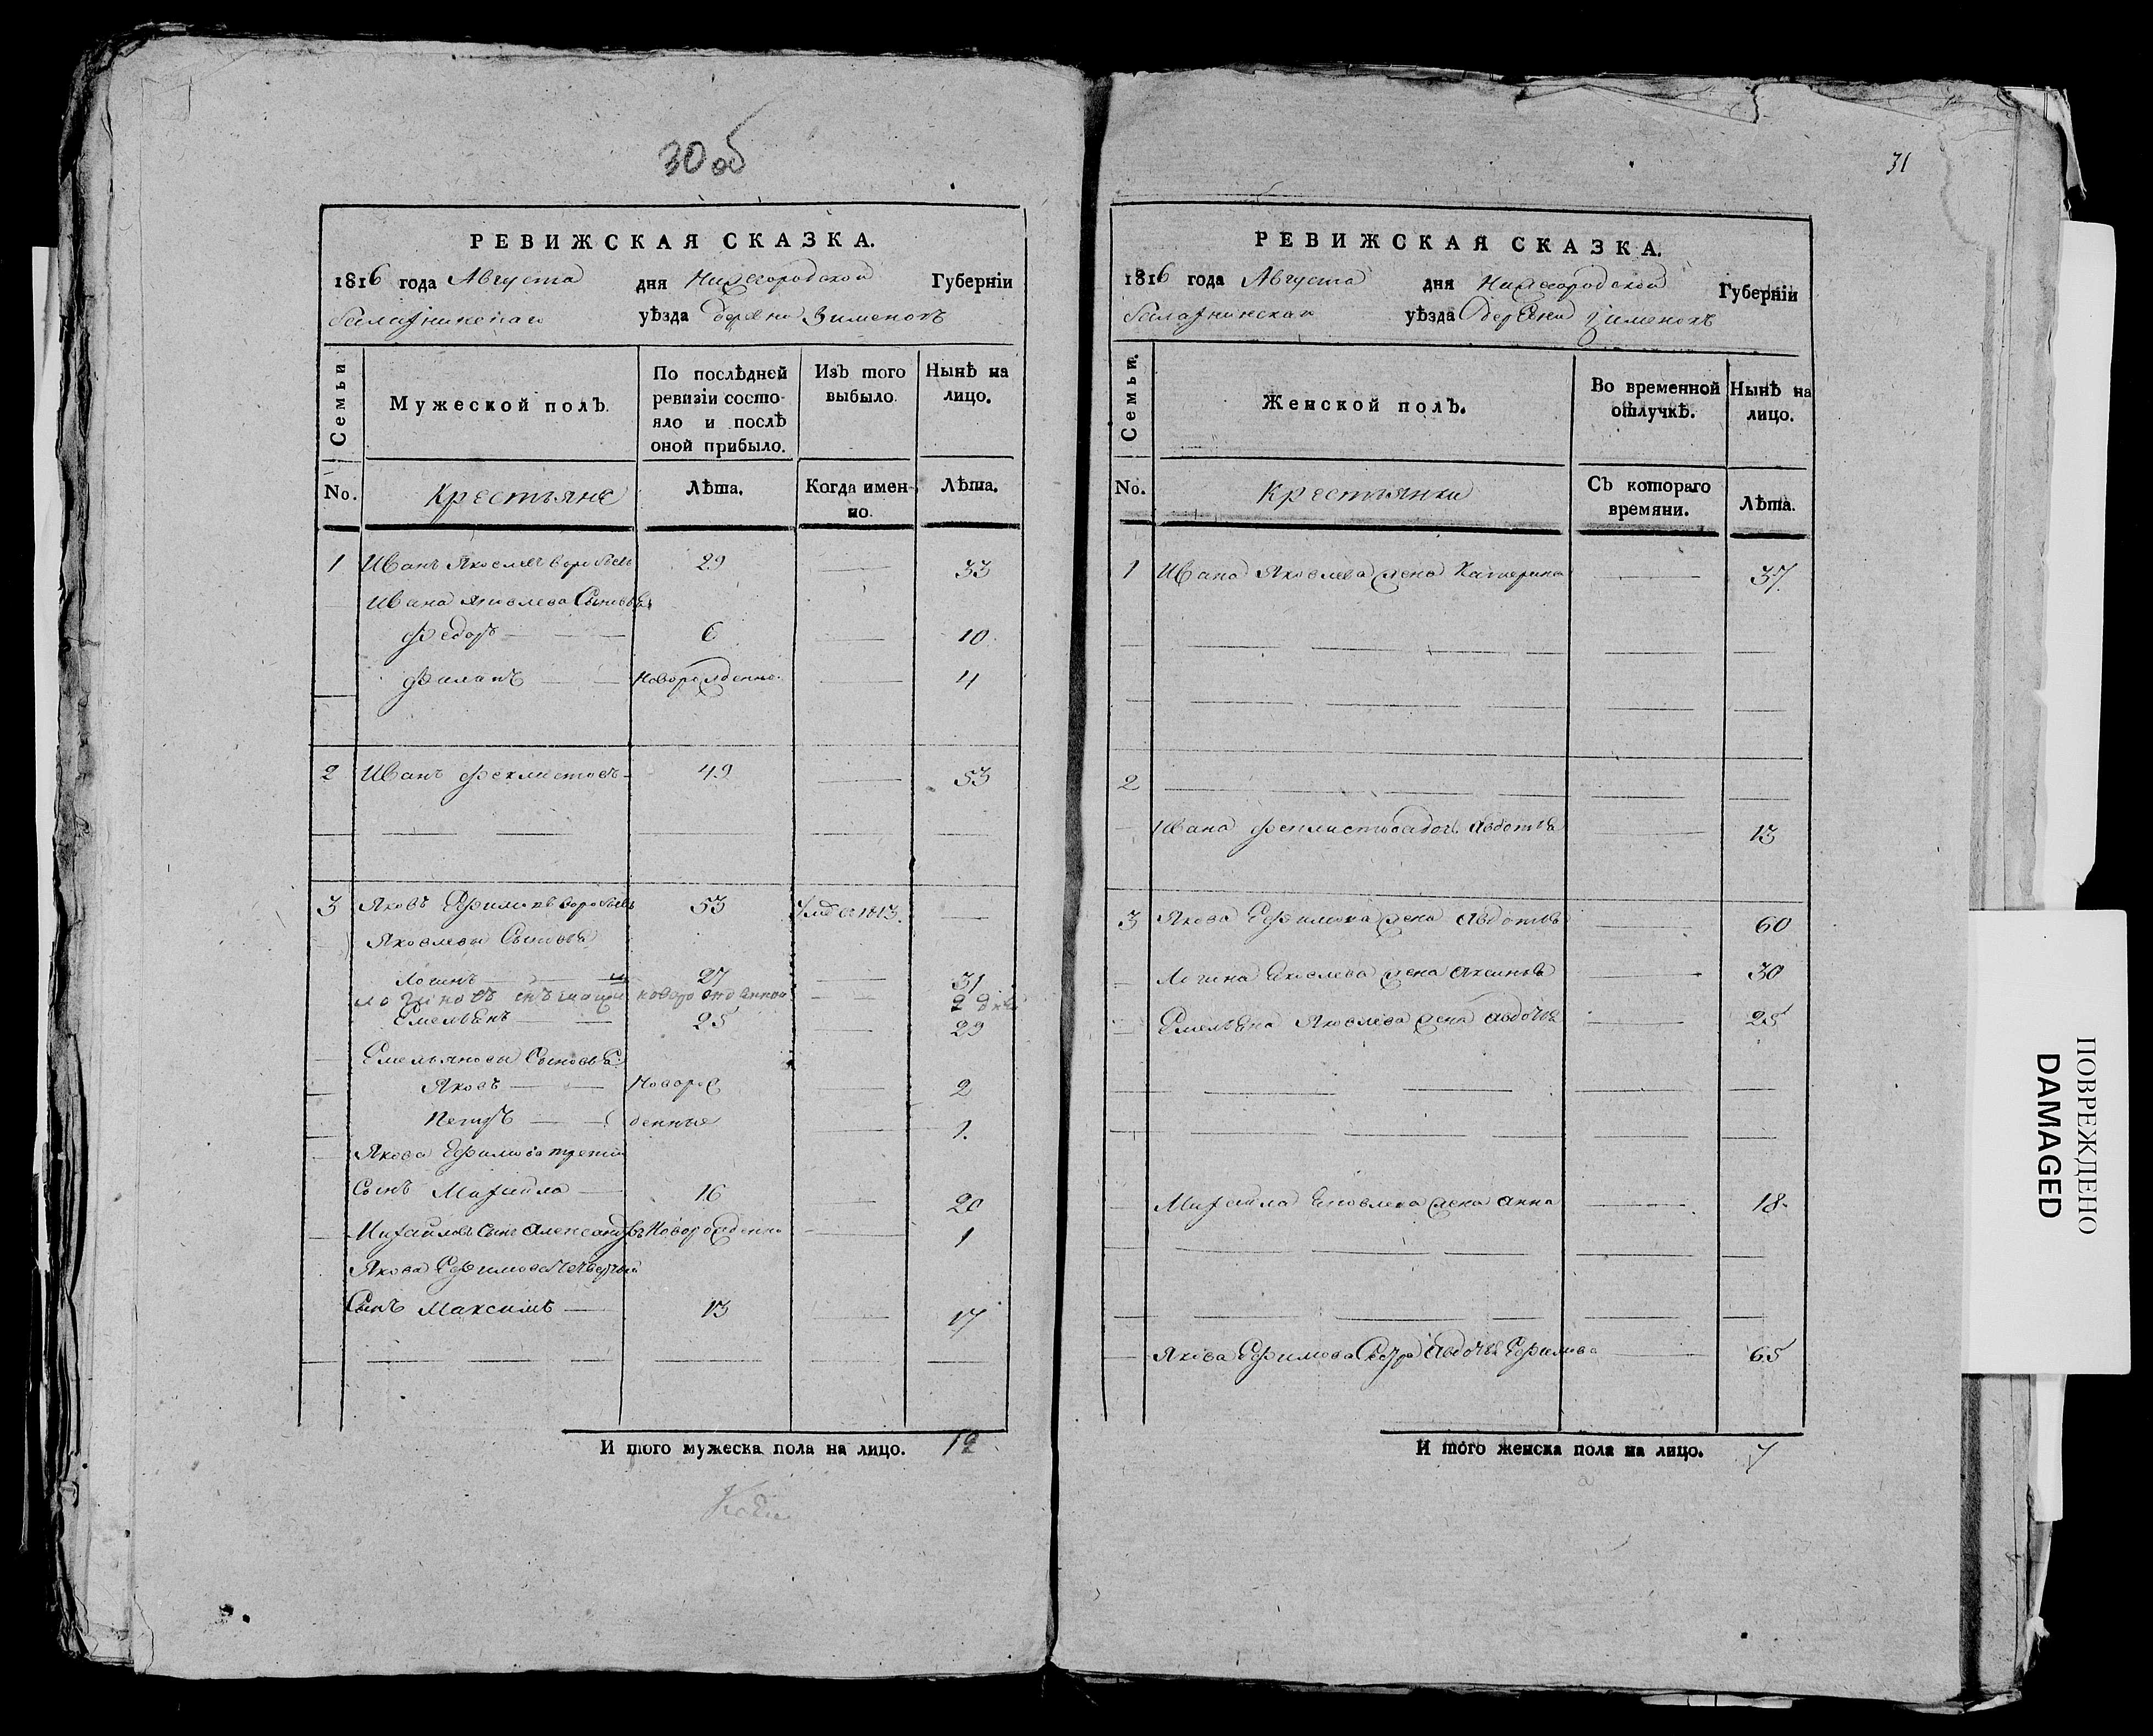 30 об
РЕВИЖСКАЯ СКАЗКА.
1816 года Августа дня Нижегородской Губерніи
Балахнинскаго уѣзда деревни Зименокъ
Семьи
Мужеской полъ.
По послѣдней ревизіи состояло и послѣ оной прибыло.
Изъ того выбыло.
Нынѣ на лицо.
No. Крестьяне Лѣта. Когда именно. Лѣта.
1 Иванъ Яковлевъ Воробьевъ 29 33
Ивана Яковлева Сыновья
Федоръ 6 10
Филапъ Новорожденно. 4
2 Иванъ Феклистовъ 49 53
3 Яковъ Ефимовъ Воробьевъ 53 Умре 1813.
Яковлевы Сыновья
Логинъ 27 31
Логиновъ сынъ новорожденной 2 дня
Емельянъ 25 29
Емельяновы Сыновья
Яковъ Новорож 2
Петръ денные 1.
Якова Ефимова третий
Сынъ Михайла 16 20
Михайловъ Сынъ Александръ Новорожденно 1
Якова Ефимова четвертый
Сынъ Максимъ 13 17
И того мужеска пола на лицо. 12
31
РЕВИЖСКАЯ СКАЗКА.
1816 года Августа дня Нижегородской Губерніи
Балахнинскаго уѣзда Деревни Зименокъ
Семьи.
Женской полъ.
Во временной отлучкѣ.
Нынѣ на лицо.
No. Крестьянки Съ котораго времяни. Лѣта.
1 Ивана Яковлева жена Катерина 37
2
Ивана Феклистова дочь Авдотья 13
3 Якова Ефимова жена Авдотья 60
Логина Яковлева жена Аксинья 30
Емельяна Яковлева жена Авдотья 25
Михайла Яковлева жена Анна 18
Якова Ефимова Сестра Авдотья Ефимова 65
И того женска пола на лицо. 7
ПОВРЕЖДЕНО
DAMAGED